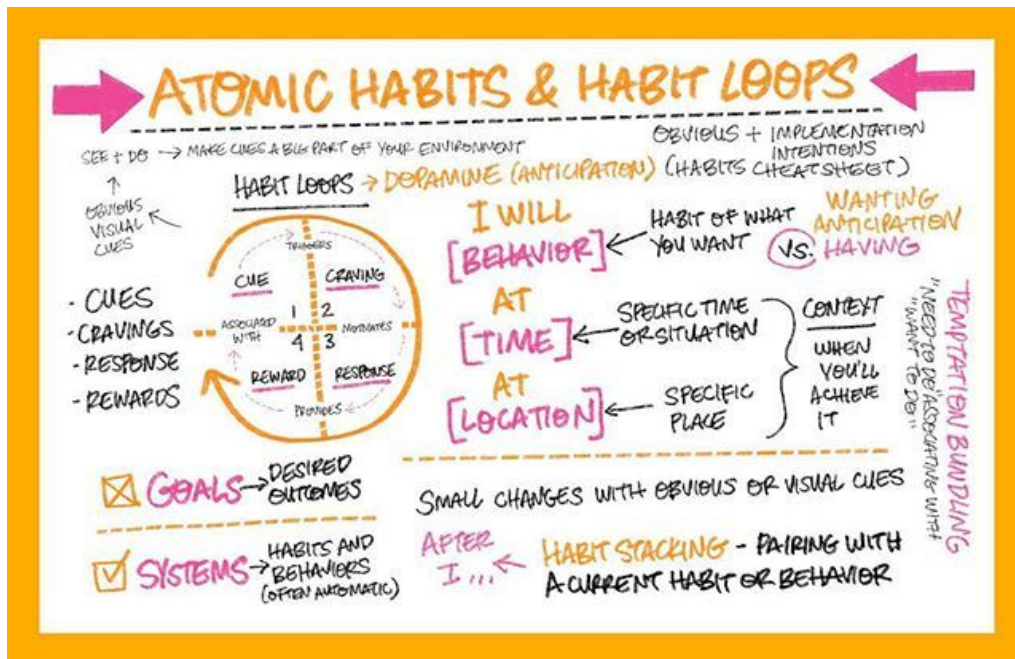 ATOMIC HABITS & HABIT LOOPS
SEE + DO → MAKE CUES A BIG PART OF YOUR ENVIRONMENT
OBVIOUS
VISUAL
CUES
OBVIOUS + IMPLEMENTATION
INTENTIONS
(HABITS CHEATSHEET)
HABIT LOOPS → DOPAMINE (ANTICIPATION)
- CUES
- CRAVINGS
- RESPONSE
- REWARDS
TRIGGERS
CUE
CRAVING
1 2
ASSOCIATED
WITH
MOTIVATES
4 3
REWARD
RESPONSE
PROVIDES
I WILL
[BEHAVIOR]
HABIT OF WHAT
YOU WANT
AT
[TIME]
SPECIFIC TIME
OR SITUATION
AT
[LOCATION]
SPECIFIC
PLACE
CONTEXT
WHEN
YOU'LL
ACHIEVE
IT
WANTING
ANTICIPATION
VS. HAVING
TEMPTATION BUNDLING
"NEED TO DO" ASSOCIATING WITH
"WANT TO DO"
GOALS →
DESIRED
OUTCOMES
SYSTEMS →
HABITS AND
BEHAVIORS
(OFTEN AUTOMATIC)
SMALL CHANGES WITH OBVIOUS OR VISUAL CUES
AFTER
I...
HABIT STACKING - PAIRING WITH
A CURRENT HABIT OR BEHAVIOR